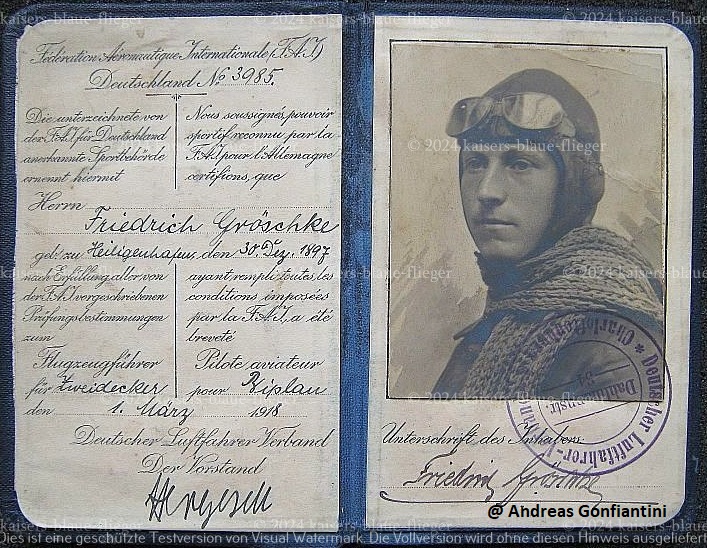 Fédération Aéronautique Internationale (F.A.I.)
Deutschland No 3985.
Die unterzeichnete von
der F.A.I. für Deutschland
anerkannte Sportbehörde
ernennt hiermit
Nous soussignés pouvoir
sportif reconnu par la
F.A.I. pour l'Allemagne
certifions, que
Herrn
Friedrich Gröschke
geb. zu Heiligenhafen, den 30. Dez. 1897
nach Erfüllung aller von
der F.A.I. vorgeschriebenen
Prüfungsbestimmungen
zum
Flugzeugführer
für Zweidecker
ayant rempli toutes les
conditions imposées
par la F.A.I., a été
breveté
Pilote aviateur
pour Biplan
den 1. März 1918
Deutscher Luftfahrer Verband
Der Vorstand
Deutscher Luftfahrer-
Charlottenburg
Unterschrift des Inhabers:
Friedrich Gröschke
@ Andreas Gonfiantini
© 2024 kaisers-blaue-flieger
Dies ist eine geschützte Testversion von Visual Watermark. Die Vollversion wird ohne diesen Hinweis ausgeliefert